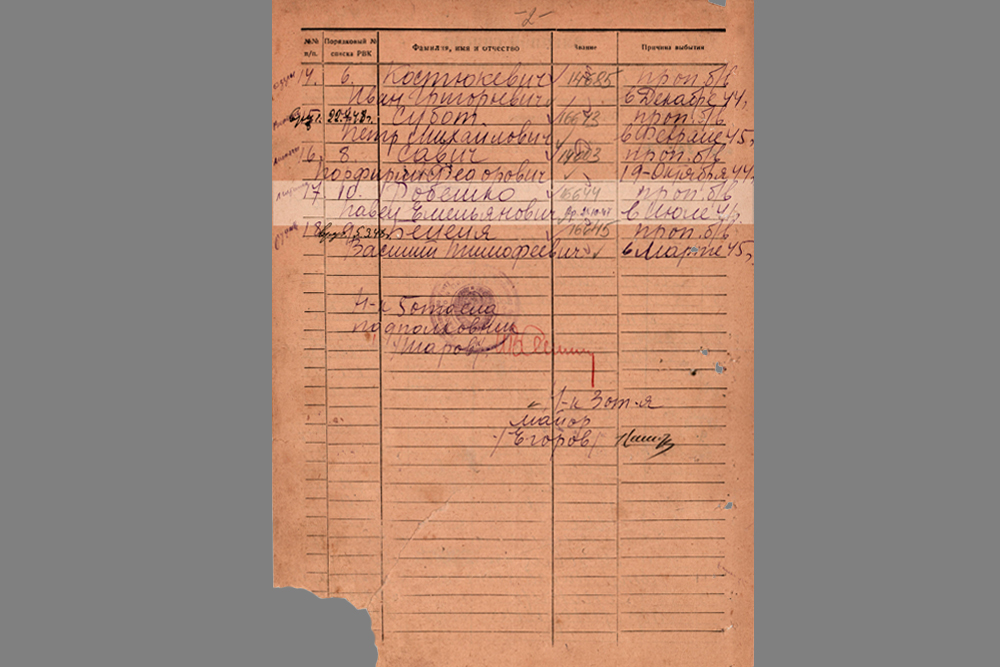 -2-
№№ Порядковый № Фамилия, имя и отчество Звание Причина выбытия
п/п. списка РВК
14. 6. Костюкевич 14685 проп. б/в
Иван Григорьевич в Декабре 44 г.
22.4.48г. Субот 16643 проп. б/в
Петр Михайлович в Феврале 45 г.
16. 8. Савич проп. б/в
Порфирий Федорович 19-Октября 44 г.
17 10. Робешко 16644 проп. б/в
Павел Емельянович в Июле 41
18 16645 проп. б/в
Василий Тимофеевич в Марте 45 г.
Н-к 5 отдела
подполковник
/Шаров/
Н-к 3 от-я
майор
/Егоров/